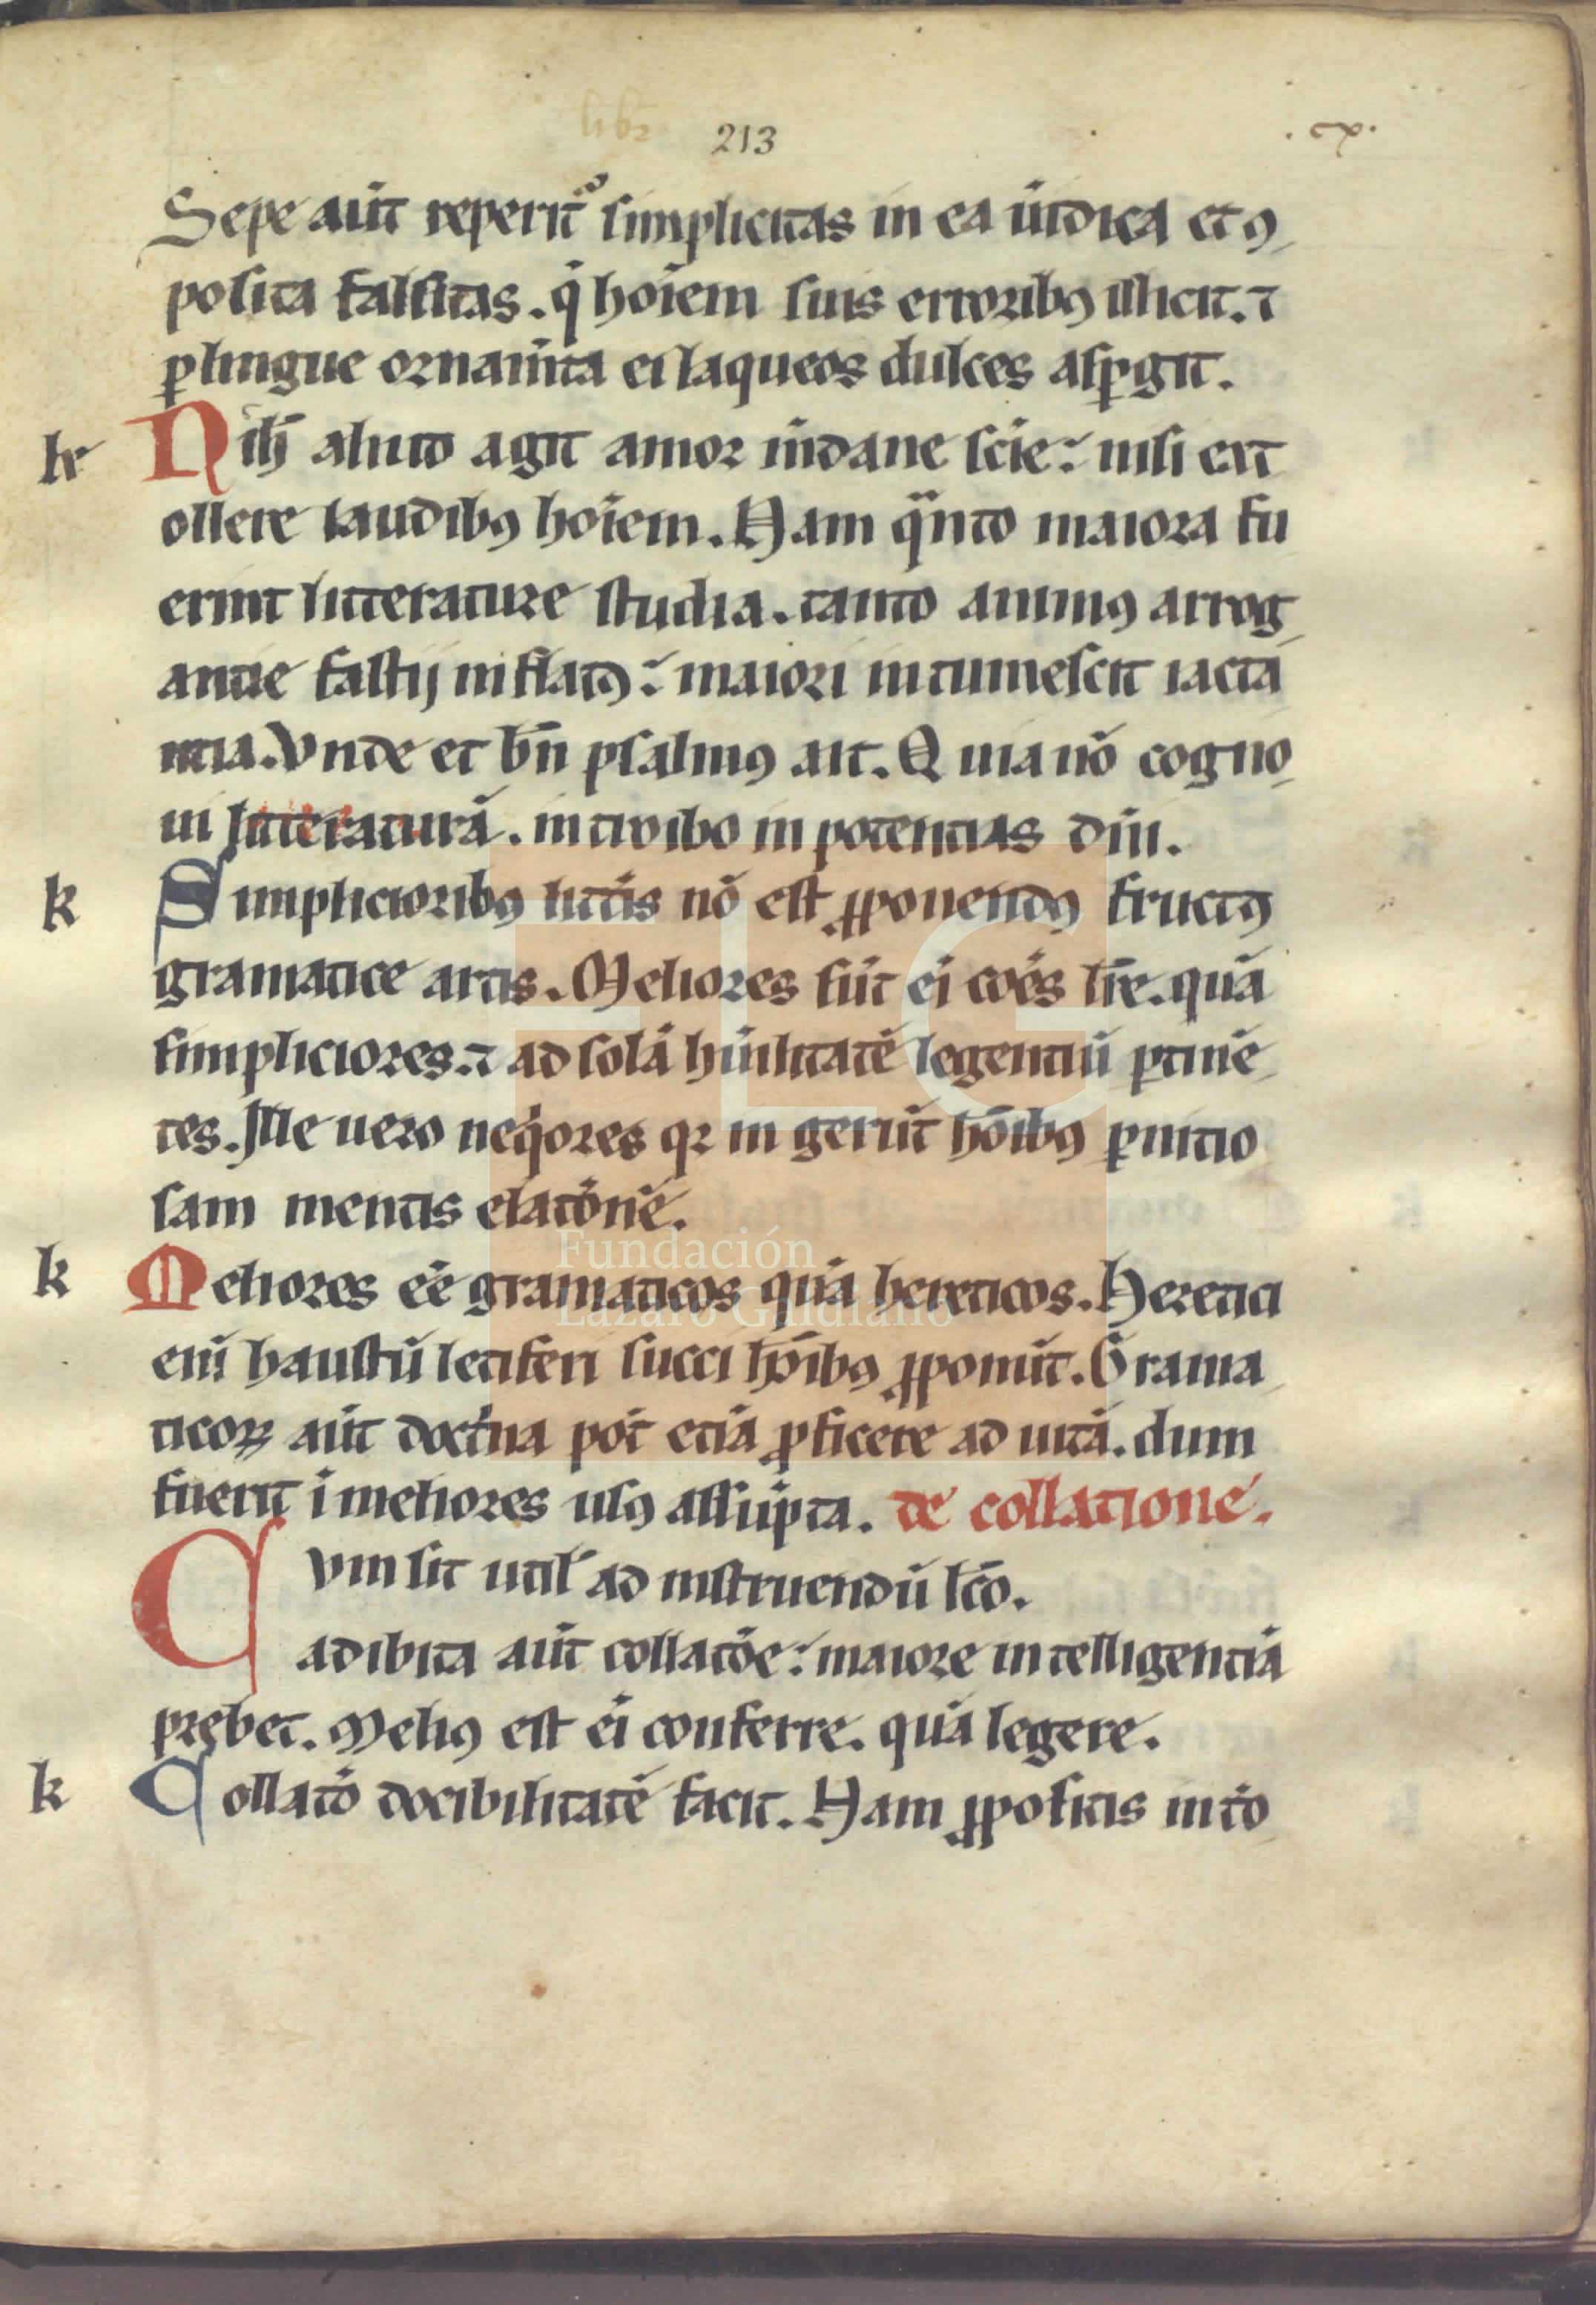 213
.cx.
Sepe aut̄ reperit᷑ simplicitas in ea ūidica et 9
posita falsitas. q̇ hoīem suis erroribꝰ illicit. ⁊
ꝑ lingue ornam̄ta ei laqueos dulces aspꝑgit.
k Nih̄ aliud agit amor mūdane scīe: nisi ext
ollere laudibꝰ hoīem. Nam qͣnto maiora fu
erint litterature studia. tanto animꝰ arrog
antie fastu inflatꝰ: maiori intumescit iacta
ntia. Vnde et bn̄ psalmꝰ ait. Quia nō cogno
ui litteraturā. introibo in potentias dn̄i.
k Simplicioribꝰ litt̄is nō est ꝓponendꝰ fructꝰ
gramatice artis. Meliores sūt ei̇ coēs lr̄e. quā
simpliciores. ⁊ ad solā hūilitatē legentiū ꝑtinē
tes. Ille uero neqͥores qꝛ in gerūt hōibꝰ ꝑnitio
sam mentis elatōnē.
k Meliores eē gramaticos quā hereticos. Heretici
eni̅ haustū letiferi succi hōibꝰ ꝓponūt. Grama
ticoꝝ aut̄ doctͥna pot̄ etiā ꝓficere ad uitā. dum
fuerit ī meliores usꝰ assūpta. de collatione.
Cvm sit util̄ ad instruendū lc̄o.
adibita aut̄ collatōe: maiorē intelligentiā
prebet. Meliꝰ est ei̇ conferre. quā legere.
k Collatō docibilitatē facit. Nam ꝓpositis int̄o
FLG
Fundación
Lázaro Galdiano